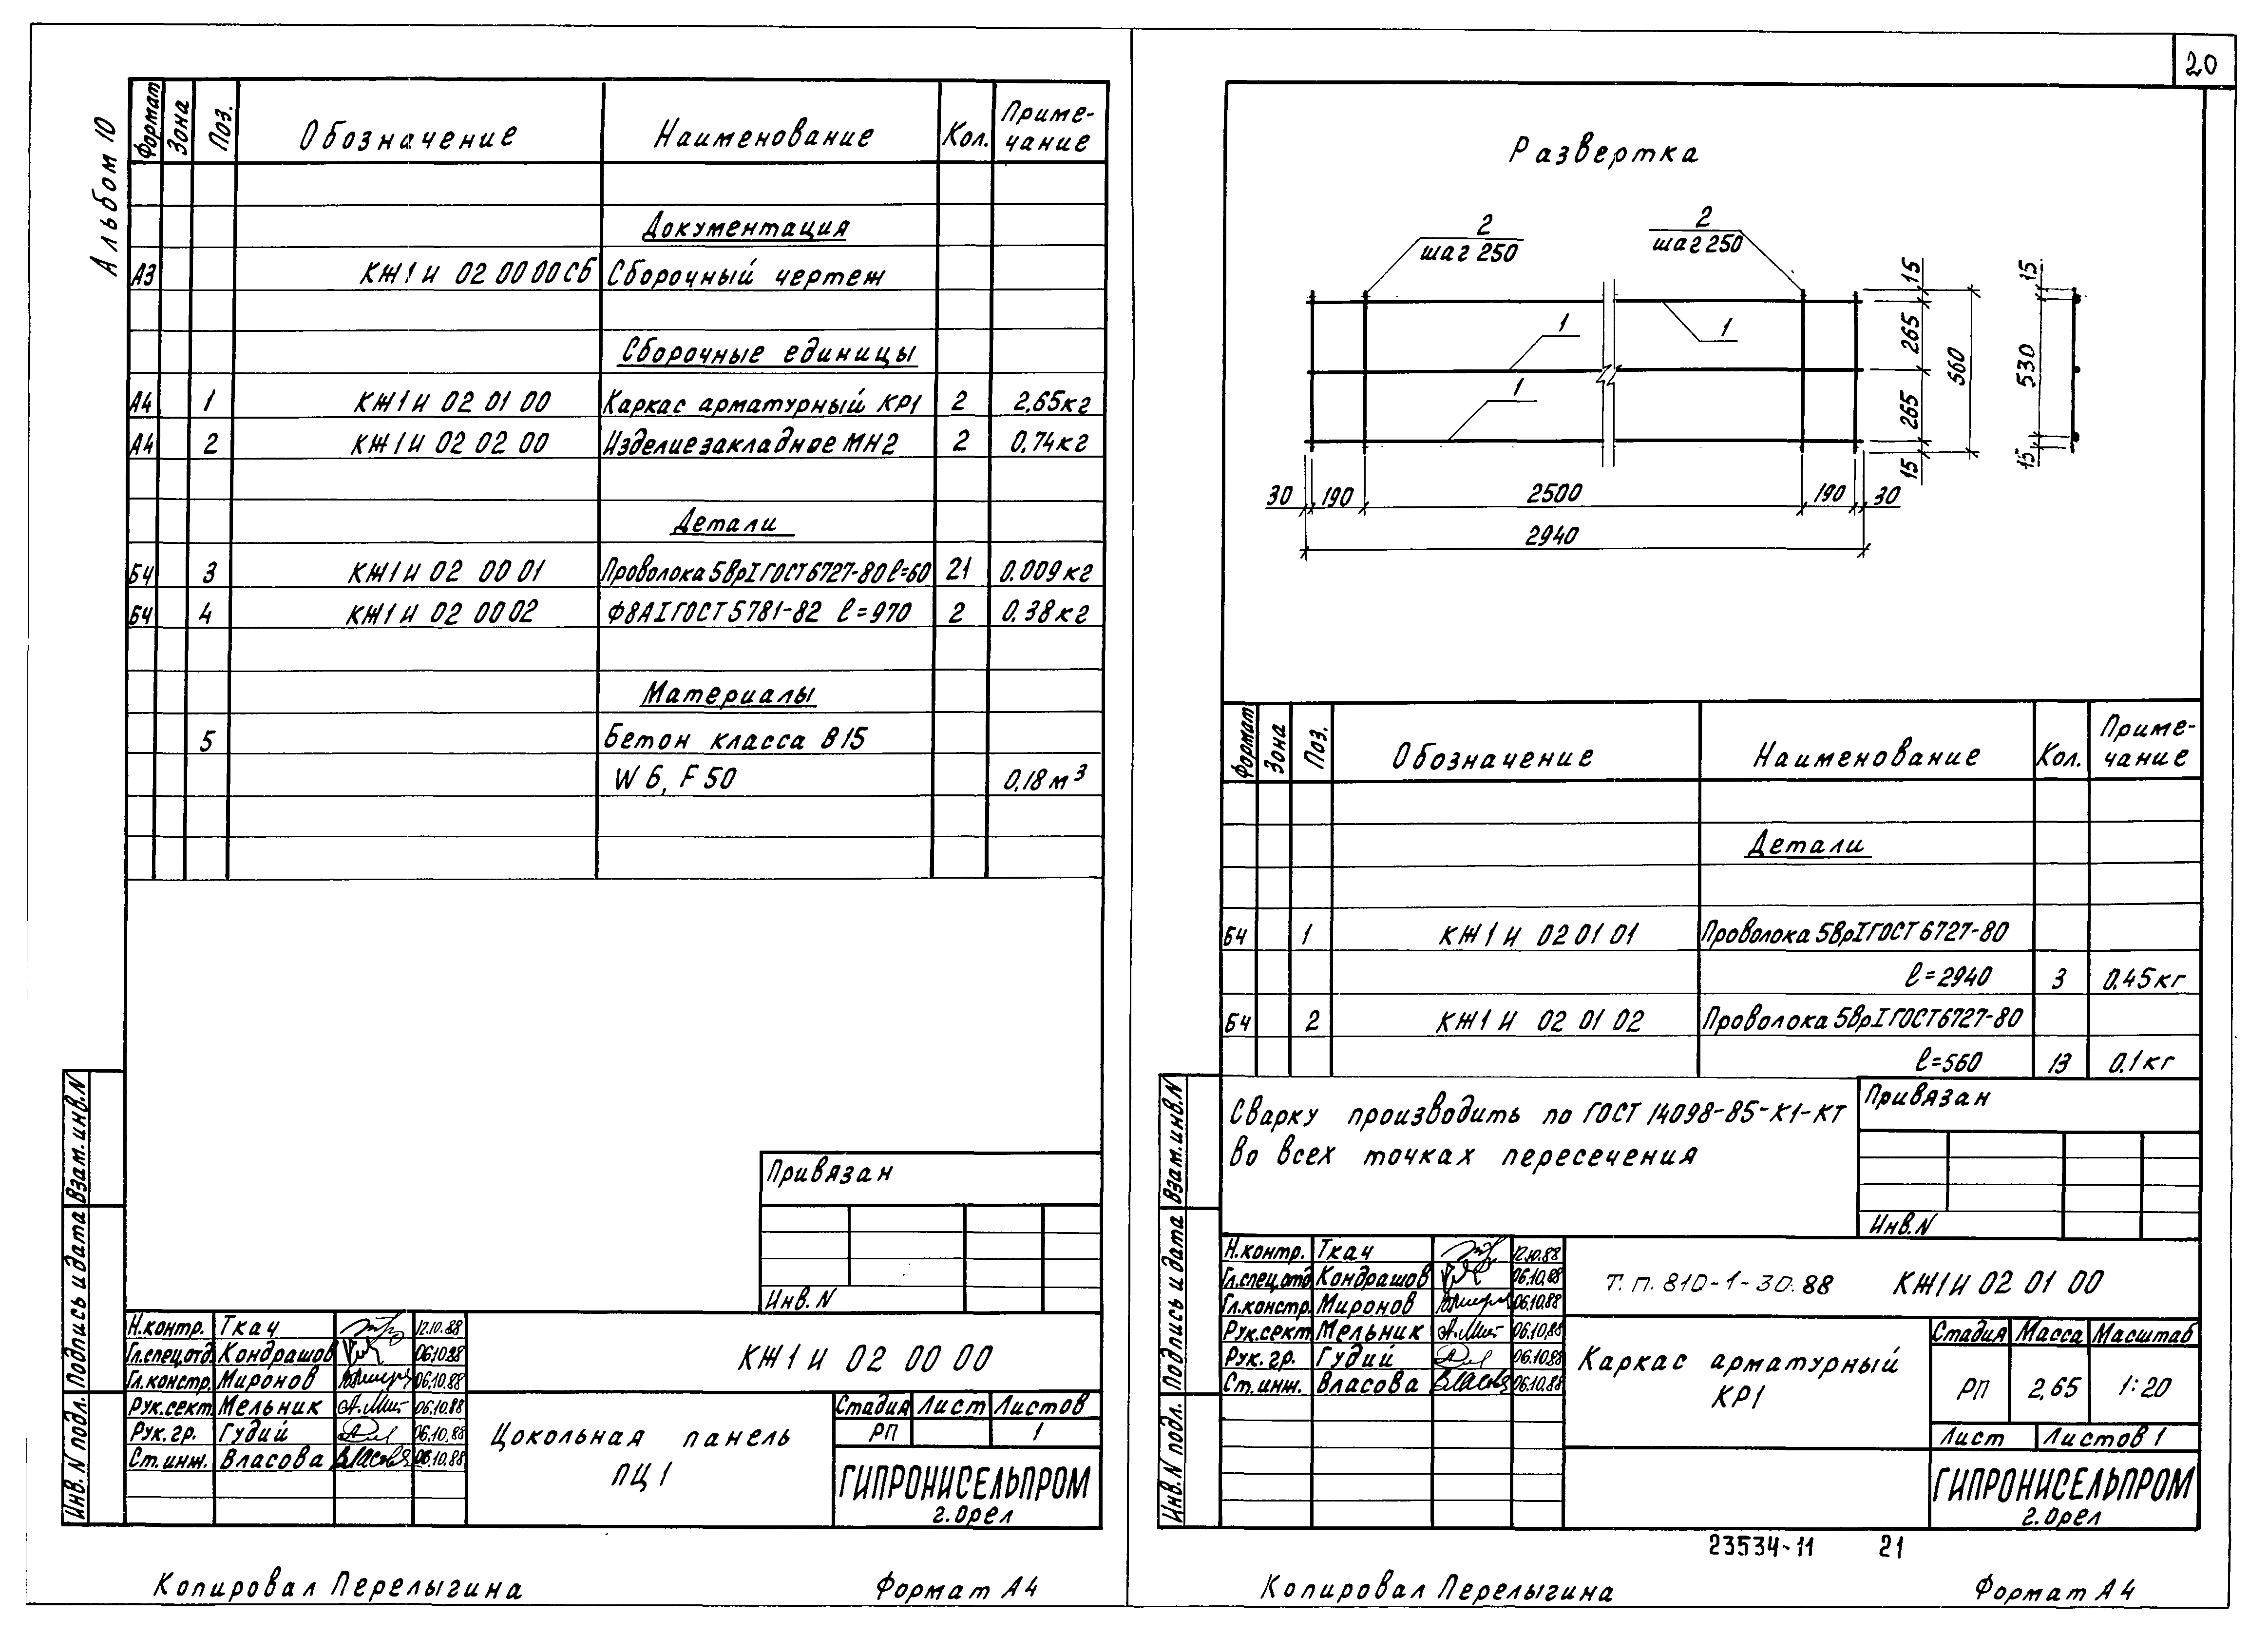 Альбом 10
Формат Зона Поз. Обозначение Наименование Кол. Приме-чание
Документация
А3 КЖ1И 02 00 00 СБ Сборочный чертеж
Сборочные единицы
А4 1 КЖ1И 02 01 00 Каркас арматурный КР1 2 2,65кг
А4 2 КЖ1И 02 02 00 Изделие закладное МН2 2 0,74кг
Детали
БЧ 3 КЖ1И 02 00 01 Проволока 5ВрI ГОСТ 6727-80 ℓ=60 21 0.009кг
БЧ 4 КЖ1И 02 00 02 Ф8АI ГОСТ 5781-82 ℓ=970 2 0.38кг
Материалы
5 Бетон класса В15
W6, F50 0,18м³
Привязан
Инв. N
Взам. инв. N
Подпись и дата
Инв. N подл.
Н.контр. Ткач 12.10.88
Гл.спец.отд. Кондрашов 06.10.88
Гл.констр. Миронов 06.10.88
Рук.сект. Мельник 06.10.88
Рук.гр. Гудий 06.10.88
Ст.инж. Власова 06.10.88
КЖ1И 02 00 00
Цокольная панель
ПЦ1
Стадия Лист Листов
РП 1
ГИПРОНИСЕЛЬПРОМ
г.Орел
Копировал Перелыгина Формат А4
20
Развертка
2
шаг 250
2
шаг 250
1
1
1
15
265
265
15
560
15
530
15
30 190 2500 190 30
2940
Формат Зона Поз. Обозначение Наименование Кол. Приме-чание
Детали
БЧ 1 КЖ1И 02 01 01 Проволока 5ВрI ГОСТ 6727-80
ℓ=2940 3 0,45кг
БЧ 2 КЖ1И 02 01 02 Проволока 5ВрI ГОСТ 6727-80
ℓ=560 13 0.1кг
Сварку производить по ГОСТ 14098-85-К1-КТ
во всех точках пересечения
Привязан
Инв. N
Взам. инв. N
Подпись и дата
Инв. N подл.
Н.контр. Ткач 12.10.88
Гл.спец.отд Кондрашов 06.10.88
Гл.констр. Миронов 06.10.88
Рук.сект. Мельник 06.10.88
Рук.гр. Гудий 06.10.88
Ст.инж. Власова 06.10.88
Т.п. 810-1-30.88 КЖ1И 02 01 00
Каркас арматурный
КР1
Стадия Масса Масштаб
РП 2,65 1:20
Лист Листов 1
ГИПРОНИСЕЛЬПРОМ
г.Орел
23534-11 21
Копировал Перелыгина Формат А4